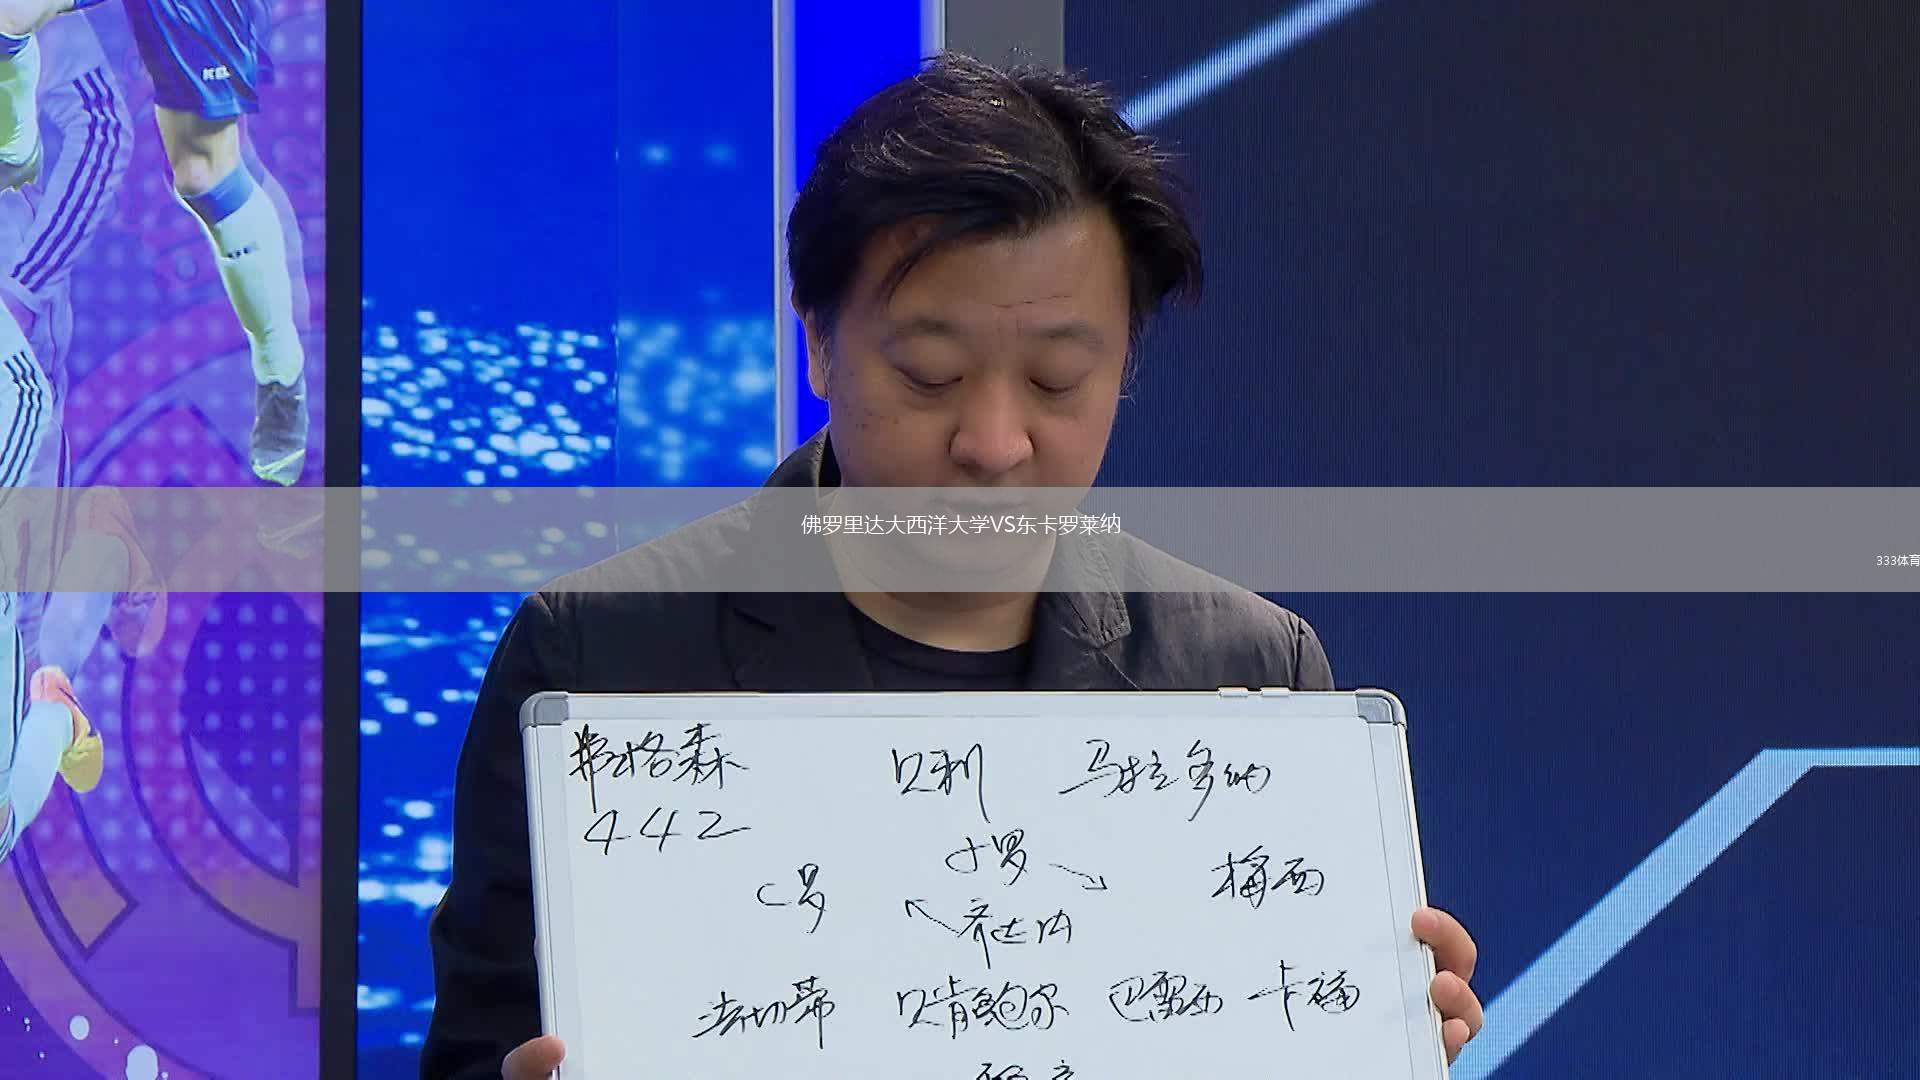 佛罗里达大西洋大学VS东卡罗莱纳
333体育
弗格森
贝利 马拉多纳
442
小罗
C罗 梅西
齐达内
法切蒂 贝肯鲍尔 巴雷西 卡福